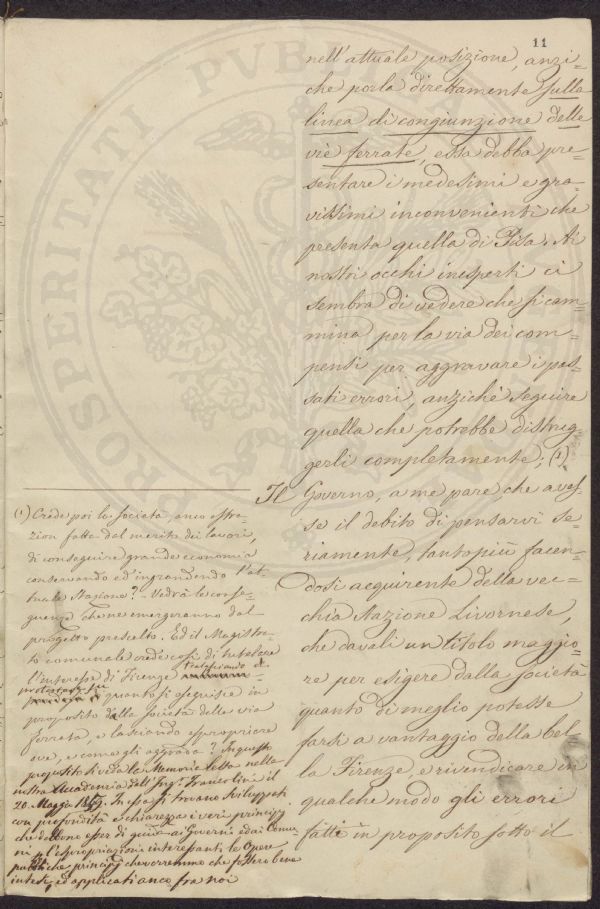 11
nell'attuale posizione, anzi=
che porla direttamente sulla
linea di congiunzione delle
vie ferrate, essa debba pre=
sentare i medesimi e gra=
vissimi inconvenienti che
presenta quella di Pisa. Ai
nostri occhi inesperti ci
sembra di vedere che si cam=
mina per la via dei com=
pensi per aggravare i pas=
sati errori, anzichè seguire
quella che potrebbe distrug=
gerli completamente; (1)
Il Governo, a me pare, che aves=
se il debito di pensarvi se=
riamente, tanto più facen=
dosi acquirente della vec=
chia stazione Livornese,
che davali un titolo maggio=
re per esigere dalla società
quanto di meglio potesse
farsi a vantaggio della bel=
la Firenze, e rivendicare in
qualche modo gli errori
fatti in proposito sotto il
(1) Crede poi la società, anco astra=
zion fatta dal merito dei lavori,
di conseguire grande economia
conservando ed ingrandendo l'at=
tuale Stazione? Vedrà le conse=
guenze che ne emergeranno dal
progetto prescelto. Ed il Magistra=
to comunale crede così di tutelare
l'interesse di Firenze
quanto si eseguisce in
proposito dalla Società delle via
ferrata, e lasciando espropriare
ove, e come gli aggrada? In questo
proposito si veda la Memoria letta nella
nostra Accademia dall'Ing.
20. Maggio In essa si trovano sviluppati
con profondità e chiarezza i veri principj
che debbono esser di guida ai Governi ed ai Comu
ni espropriazioni interessanti le Opere
pubbliche principj che vorremmo che fossero bene
intesi, ed applicati anco fra noi
PROSPERITATI PVBLICAE